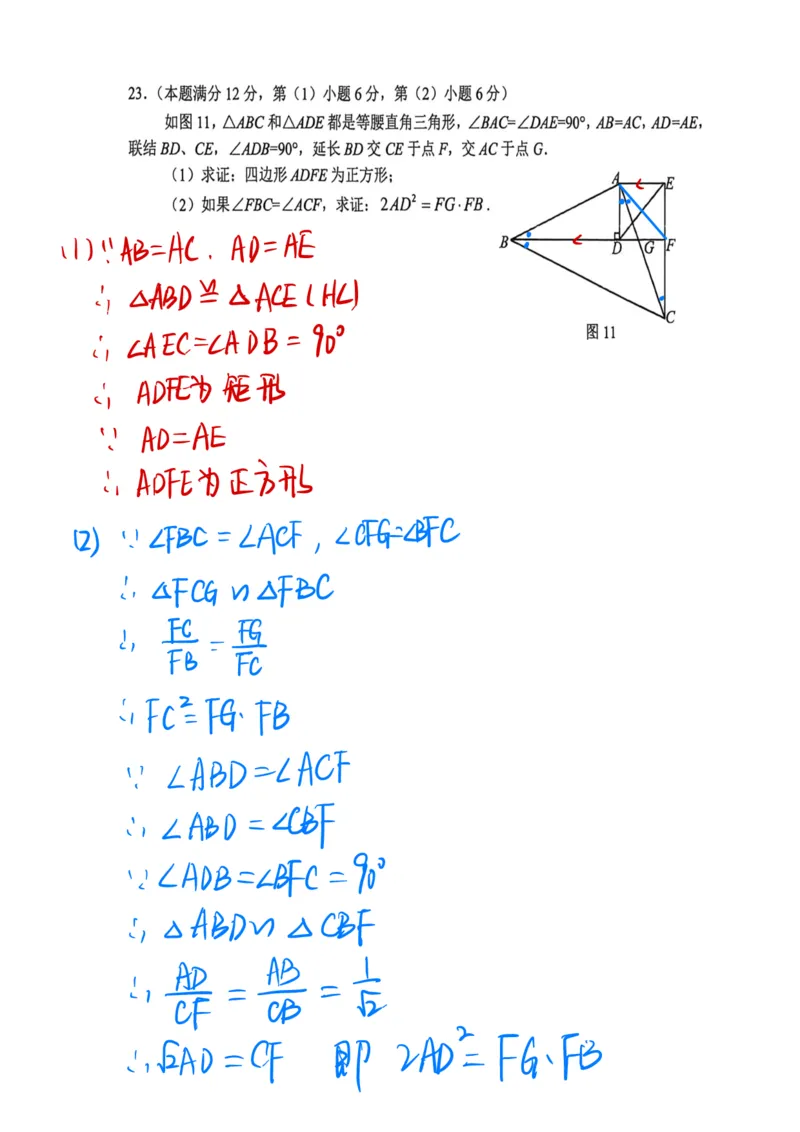 23.(本题满分12分,第(1)小题6分,第(2)小题6分)
如图11,△ABC和△ADE都是等腰直角三角形,∠BAC=∠DAE=90°,AB=AC,AD=AE,
联结BD、CE,∠ADB=90°,延长BD交CE于点F,交AC于点G.
(1)求证:四边形ADFE为正方形;
(2)如果∠FBC=∠ACF,求证:2AD²=FG·FB.
A E
B D G F
C
图11
(1)∵AB=AC. AD=AE
∴ △ABD≌△ACE(HL)
∴ ∠AEC=∠ADB=90°
∴ ADFE为矩形
∵ AD=AE
∴ ADFE为正方形
(2) ∵∠FBC=∠ACF,∠CFG=∠BFC
∴ △FCG∽△FBC
∴ FC/FB=FG/FC
∴FC²=FG·FB
∵ ∠ABD=∠ACF
∴ ∠ABD=∠CBF
∵∠ADB=∠BFC=90°
∴ △ABD∽△CBF
∴ AD/CF=AB/CB=1/√2
∴√2AD=CF 即 2AD²=FG·FB